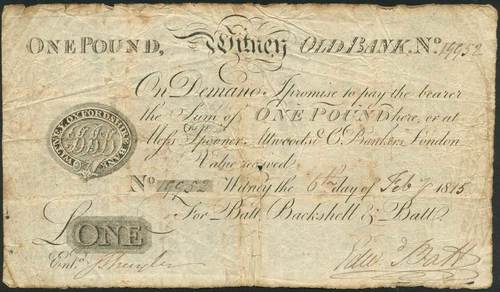 ONE POUND, Witney OLD BANK. No. 19952
On Demand I promise to pay the bearer
the Sum of ONE POUND here, or at
Mess.rs Spooner, Attwoods & Co. Bankers London
Value received
No 19952 Witney the 6th day of Feby 1815
WITNEY OXFORDSHIRE BANK
For Batt, Backshell & Batt.
£ONE
Ent.d
Edwd Batt